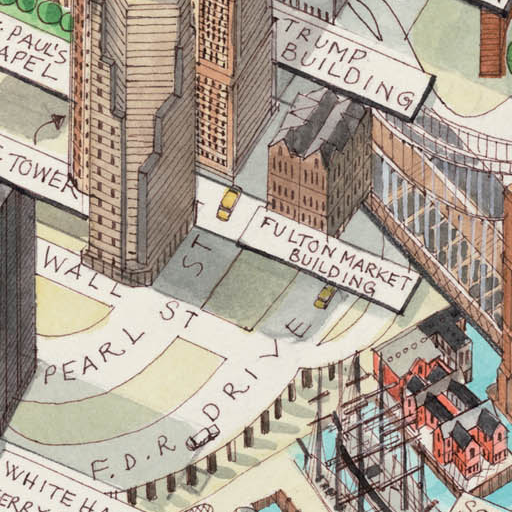 T. PAUL'S
APEL
TRUMP
BUILDING
TOWER
FULTON MARKET
BUILDING
WALL ST
ST
PEARL ST
F.D.R. DRIVE
WHITE HA
ERRY